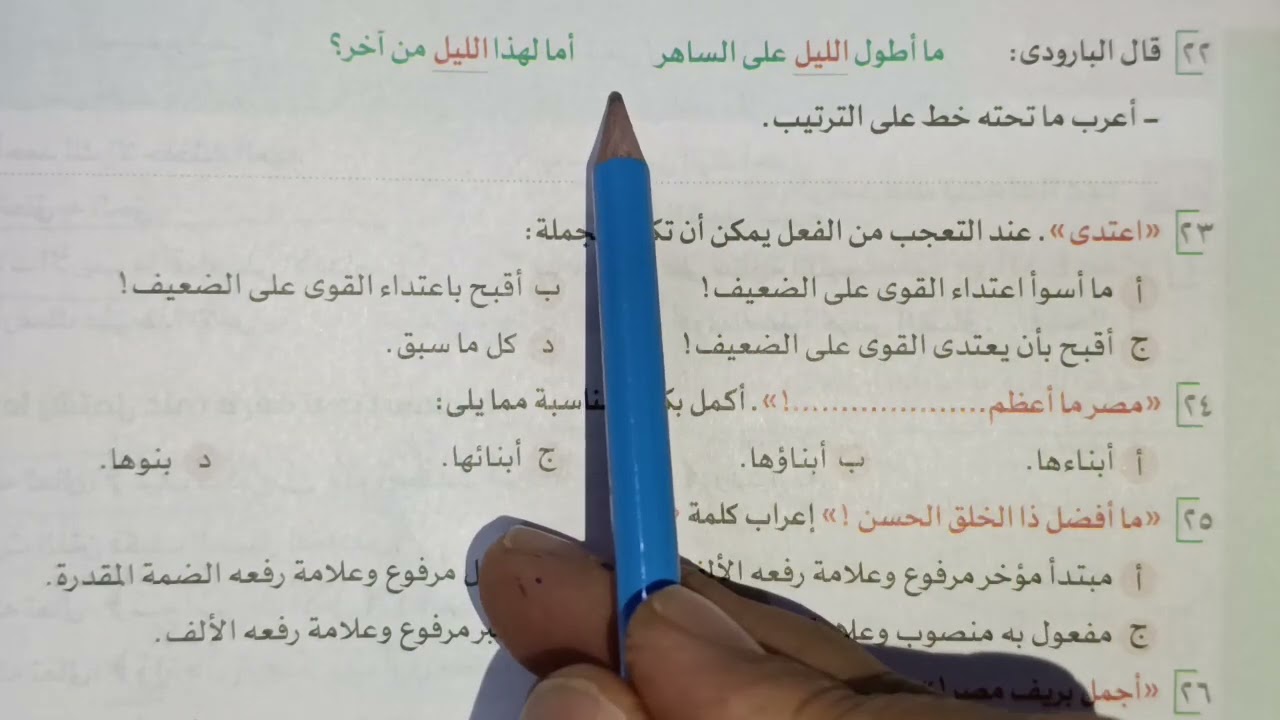 ٢٢ قال البارودى: ما أطول الليل على الساهر أما لهذا الليل من آخر؟
- أعرب ما تحته خط على الترتيب.
٢٣ «اعتدى». عند التعجب من الفعل يمكن أن جملة:
أ ما أسوأ اعتداء القوى على الضعيف! ب أقبح باعتداء القوى على الضعيف!
ج أقبح بأن يعتدى القوى على الضعيف! د كل ما سبق.
٢٤ «مصر ما أعظم ....................!». أكمل مما يلى:
أ أبناءها. ب أبناؤها. ج أبنائها. د بنوها.
٢٥ «ما أفضل ذا الخلق الحسن !» إعراب كلمة
أ مبتدأ مؤخر مرفوع وعلامة رفعه مرفوع وعلامة رفعه الضمة المقدرة.
ج مفعول به منصوب مرفوع وعلامة رفعه الألف.
٢٦ «أجمل بريف مصر!